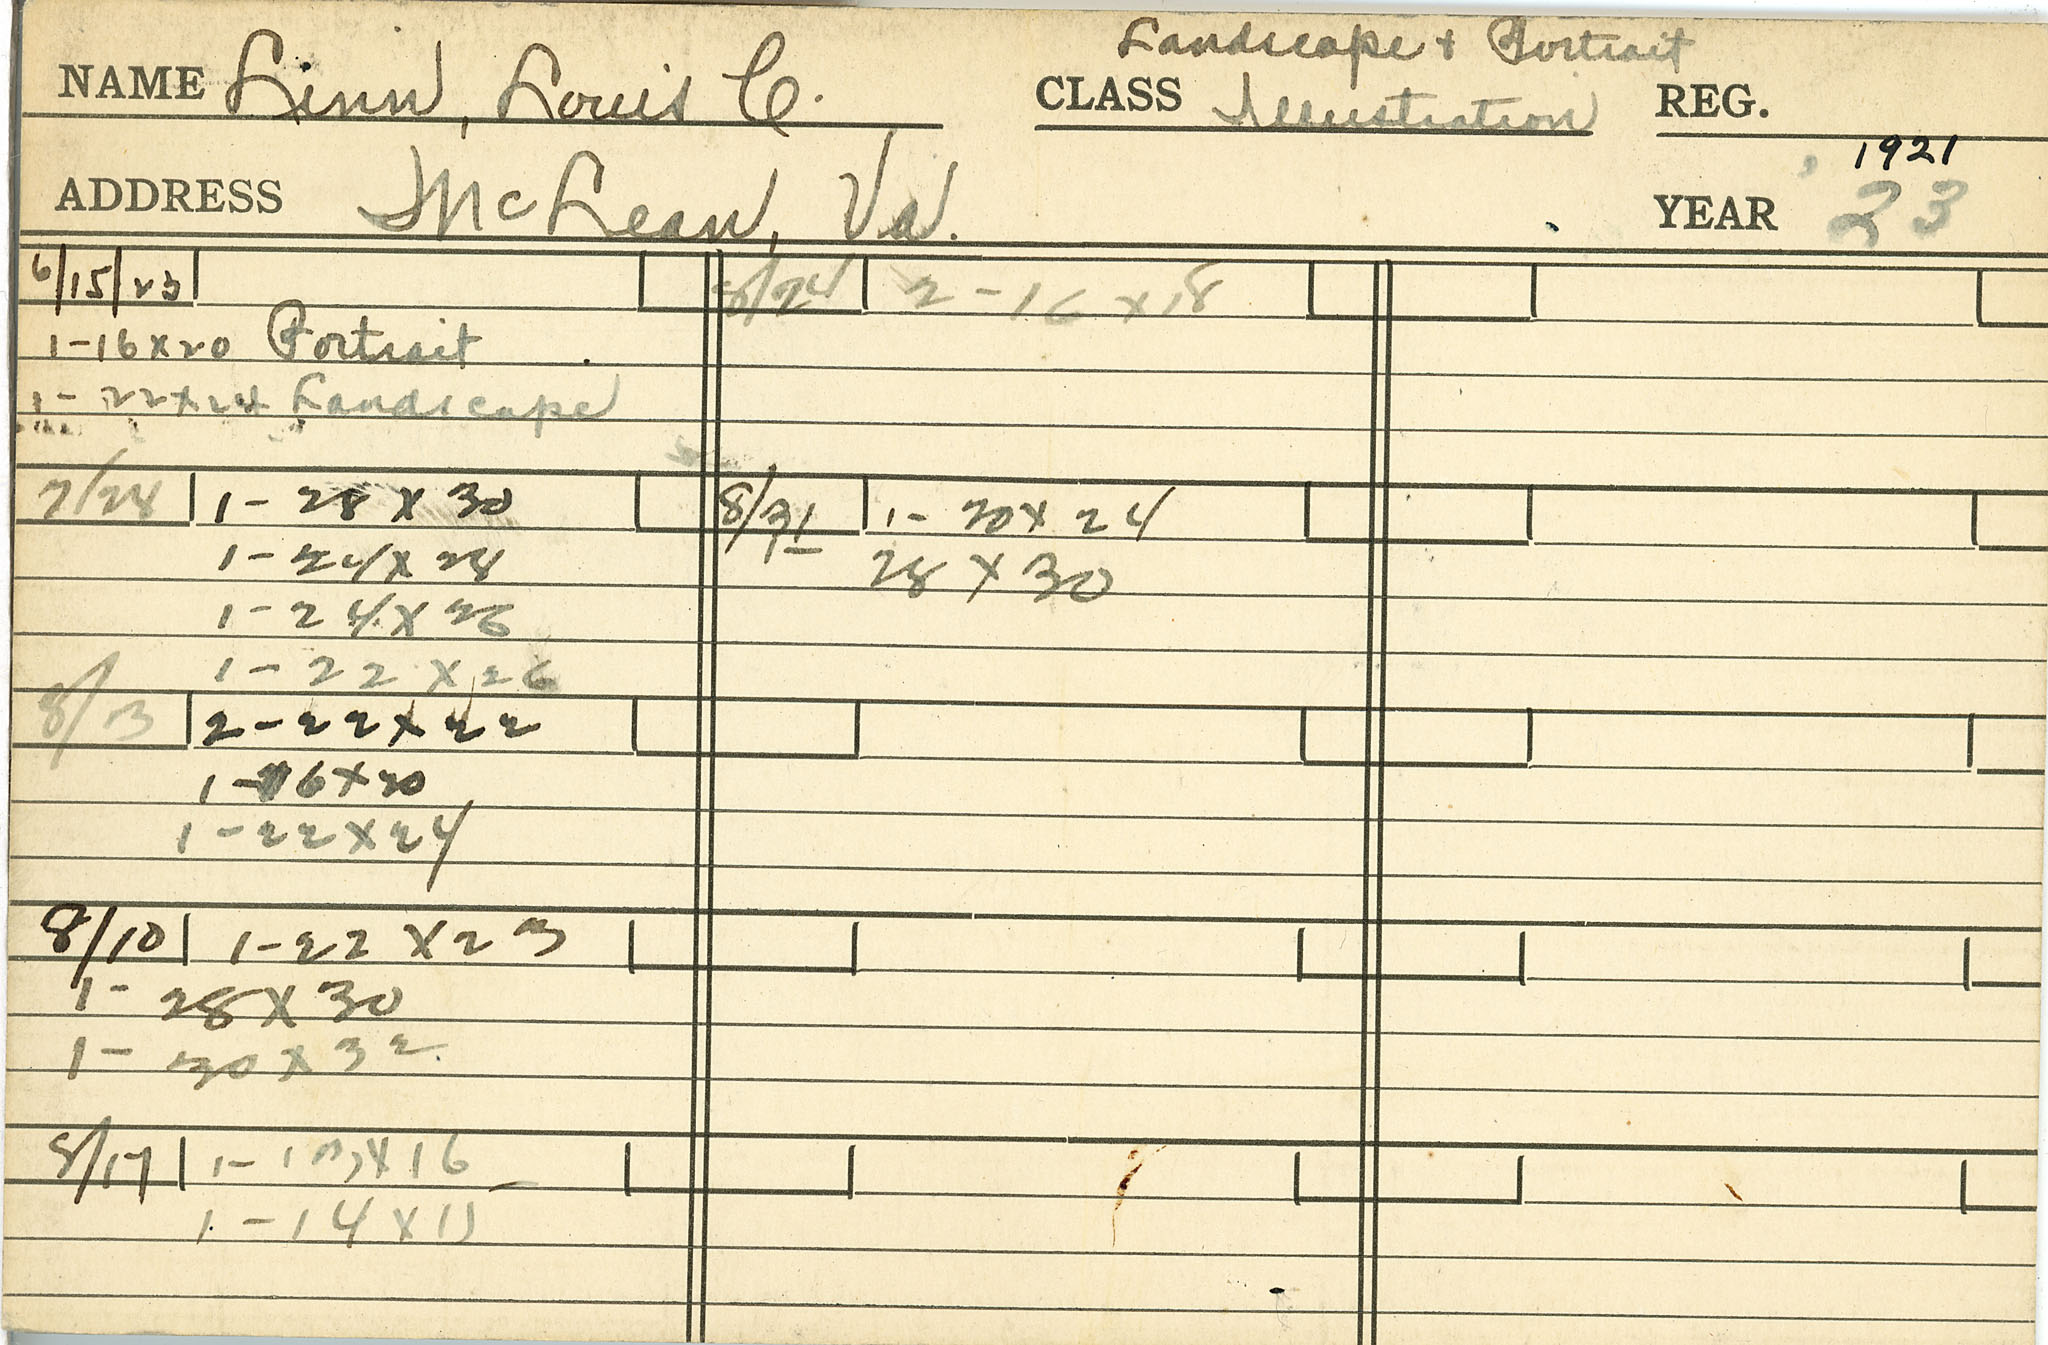 Landscape + Portrait
NAME Linn, Louis C. CLASS Illustration REG.
1921
ADDRESS McLean, Va. YEAR 23
6/15/23
1-16x20 Portrait
1-22x24 Landscape
7/28 1-28 x 30
1-24x28
1-24x26
1-22 x 26
8/3 2-22x22
1-16x20
1-22x24
8/10 1-22 x 23
1-28 x 30
1-30 x 32
8/17 1- x16
1-14 x
8/24 2-16 x 18
8/31 1-20x24
28 x 30